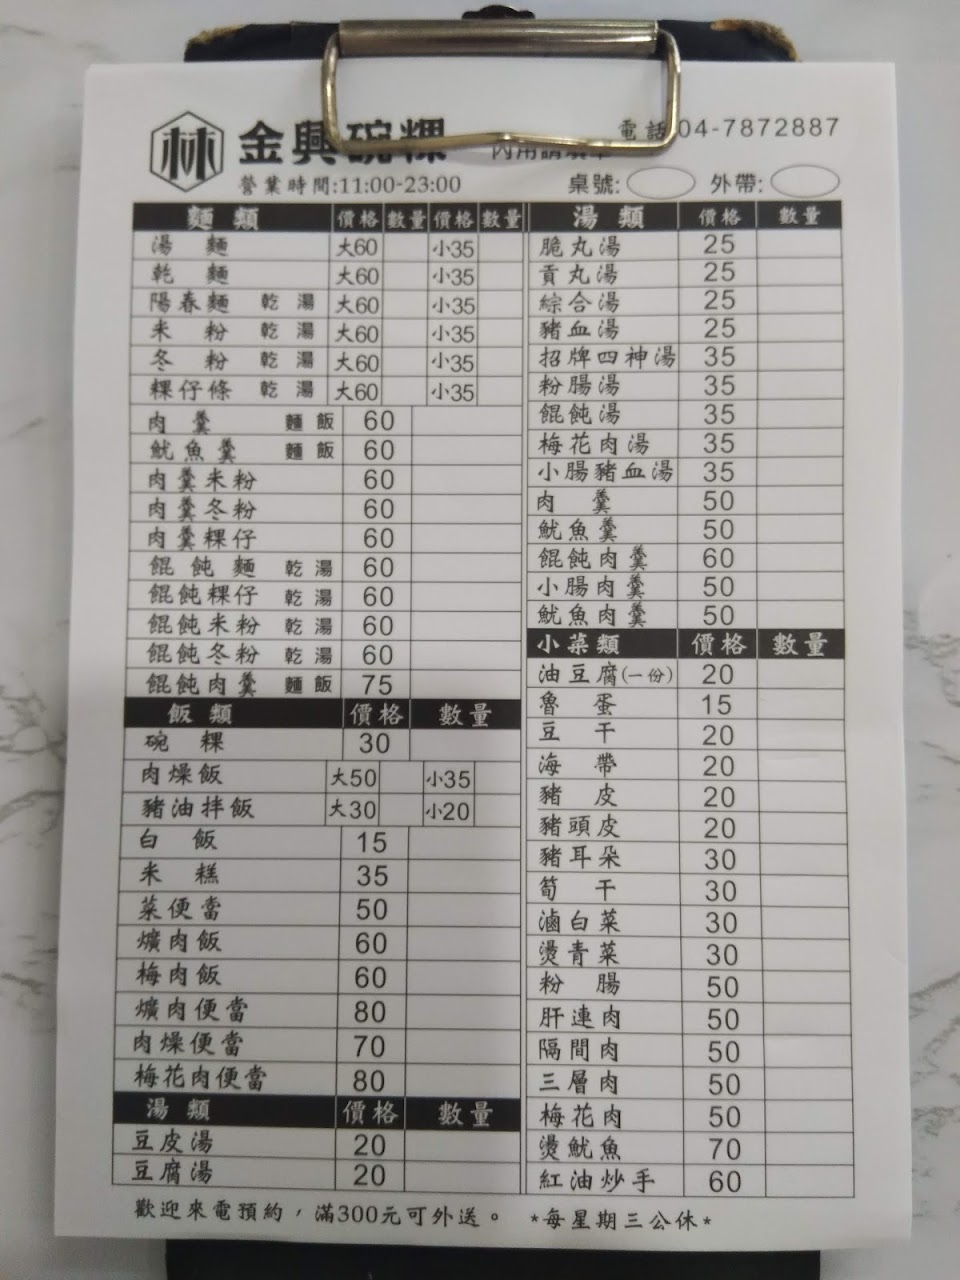 林 金興碗粿
電話 04-7872887
營業時間:11:00-23:00
桌號: 外帶:
麵類 價格 數量 價格 數量
湯麵 大60 小35
乾麵 大60 小35
陽春麵 乾 湯 大60 小35
米粉 乾 湯 大60 小35
冬粉 乾 湯 大60 小35
粿仔條 乾 湯 大60 小35
肉羹 麵 飯 60
魷魚羹 麵 飯 60
肉羹米粉 60
肉羹冬粉 60
肉羹粿仔 60
餛飩麵 乾 湯 60
餛飩粿仔 乾 湯 60
餛飩米粉 乾 湯 60
餛飩冬粉 乾 湯 60
餛飩肉羹 麵 飯 75
飯類 價格 數量
碗粿 30
肉燥飯 大50 小35
豬油拌飯 大30 小20
白飯 15
米糕 35
菜便當 50
爌肉飯 60
梅肉飯 60
爌肉便當 80
肉燥便當 70
梅花肉便當 80
湯類 價格 數量
豆皮湯 20
豆腐湯 20
湯類 價格 數量
脆丸湯 25
貢丸湯 25
綜合湯 25
豬血湯 25
招牌四神湯 35
粉腸湯 35
餛飩湯 35
梅花肉湯 35
小腸豬血湯 35
肉羹 50
魷魚羹 50
餛飩肉羹 60
小腸肉羹 50
魷魚肉羹 50
小菜類 價格 數量
油豆腐(一份) 20
魯蛋 15
豆干 20
海帶 20
豬皮 20
豬頭皮 20
豬耳朵 30
筍干 30
滷白菜 30
燙青菜 30
粉腸 50
肝連肉 50
隔間肉 50
三層肉 50
梅花肉 50
燙魷魚 70
紅油炒手 60
歡迎來電預約，滿300元可外送。 *每星期三公休*